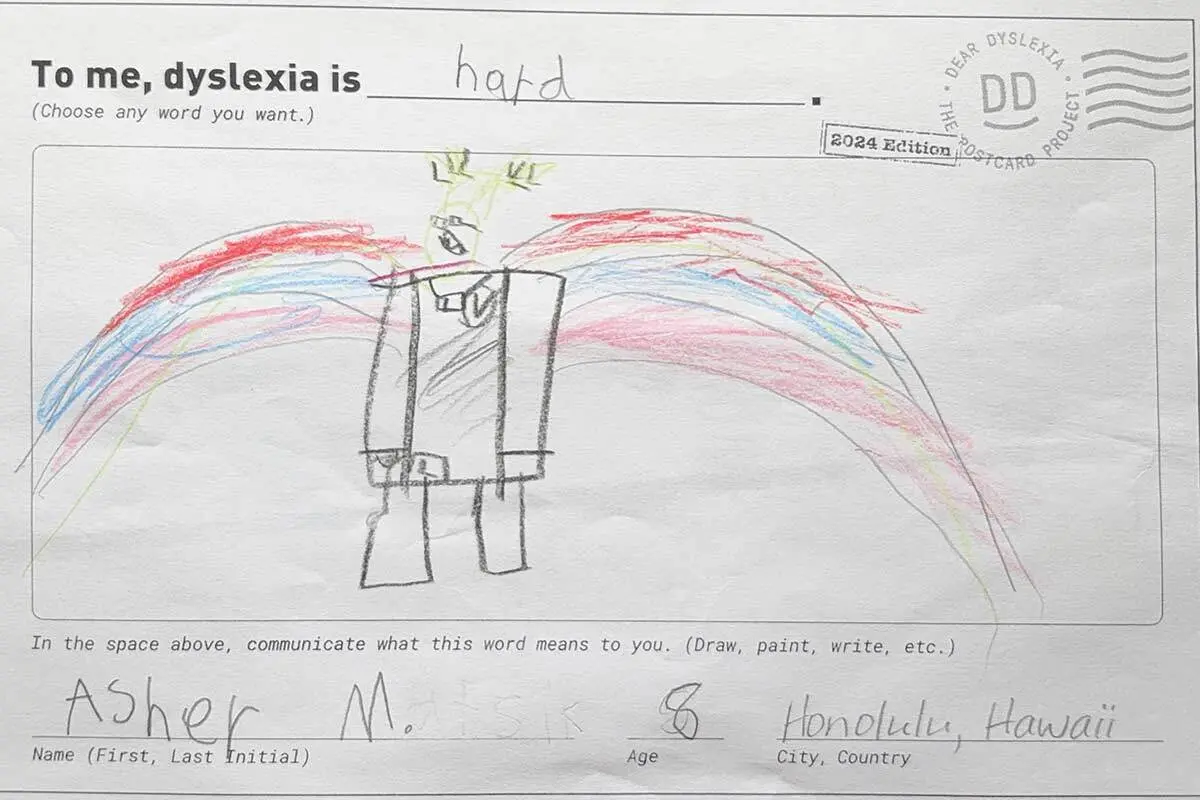 To me, dyslexia is hard.
(Choose any word you want.)
DEAR DYSLEXIA • THE POSTCARD PROJECT •
DD
2024 Edition
In the space above, communicate what this word means to you. (Draw, paint, write, etc.)
Asher M. 8 Honolulu, Hawaii
Name (First, Last Initial) Age City, Country